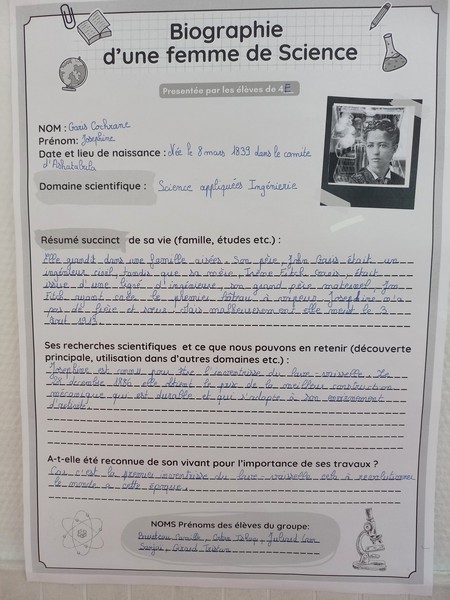 Biographie
d'une femme de Science
Présentée par les élèves de 4E
NOM : Garis Cochrane
Prénom: Josephine
Date et lieu de naissance : Née le 8 mars 1839 dans le comité
d'Ashatabula
Domaine scientifique : Science appliquées Ingénierie
Résumé succinct de sa vie (famille, études etc.) :
Elle grandit dans une famille aisées. Son père, John Garis était un
ingénieur civil, tandis que sa mère, Irène Fitch Garis, était
issue d'une ligné d'ingénieurs, son grand père maternel, Jon
Fitch ayant créé le premier bateau à vapeur. Josephine n'a
pas de frère et sœurs. Mais malheureusement elle meurt le 3
Août 1913.
Ses recherches scientifiques et ce que nous pouvons en retenir (découverte
principale, utilisation dans d'autres domaines etc.) :
Josephine est connu pour être l'inventrisse du lave-vaisselle. Le
28 décembre 1886 elle obtient le prix de la meilleur construction
mécanique qui est durable et qui s'adapte à son environement
d'activité.
A-t-elle été reconnue de son vivant pour l'importance de ses travaux ?
c'est la première inventrisse du lave-vaisselle cela à revolutionner
le monde à cette époque.
NOMS Prénoms des élèves du groupe:
Camille
Tristan